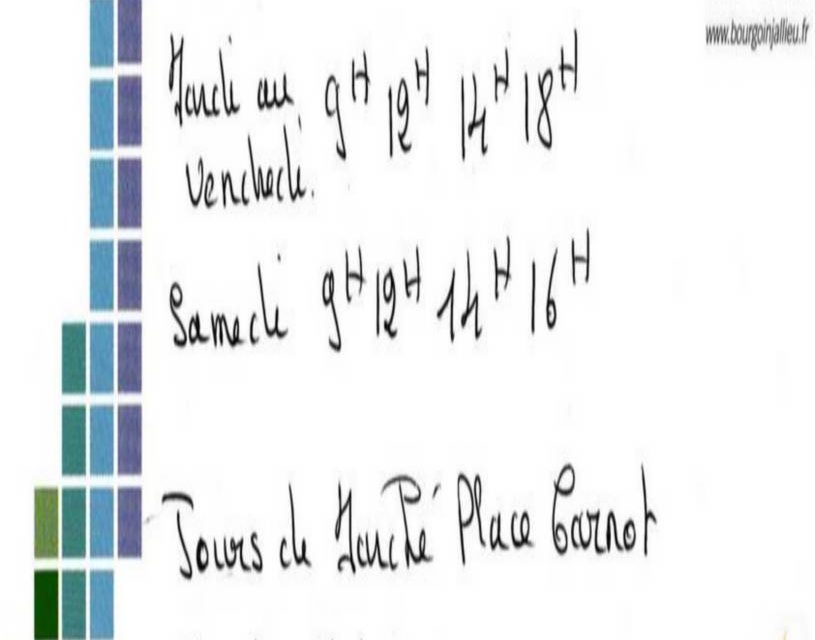 www.bourgoinjallieu.fr
Mardi au 9H 12H 14H 18H
Vendredi.
Samedi 9H 12H 14H 16H
Jours de Marché Place Carnot